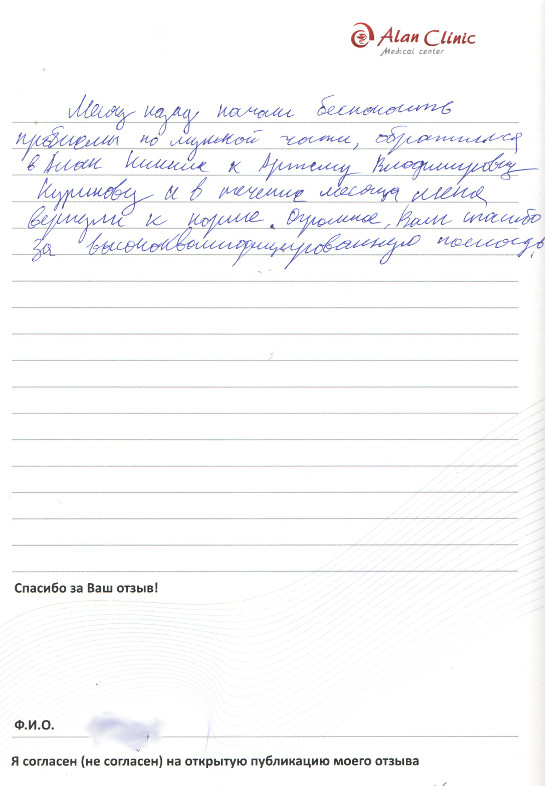 Alan Clinic
Medical center
Месяц назад начали беспокоить
проблемы по мужской части, обратился
в Алан Клиник к Артему Владимировичу
Куликову и в течение месяца меня
вернули к норме. Огромное, Вам спасибо
за высококвалифицированную помощь.
Спасибо за Ваш отзыв!
Ф.И.О.
Я согласен (не согласен) на открытую публикацию моего отзыва